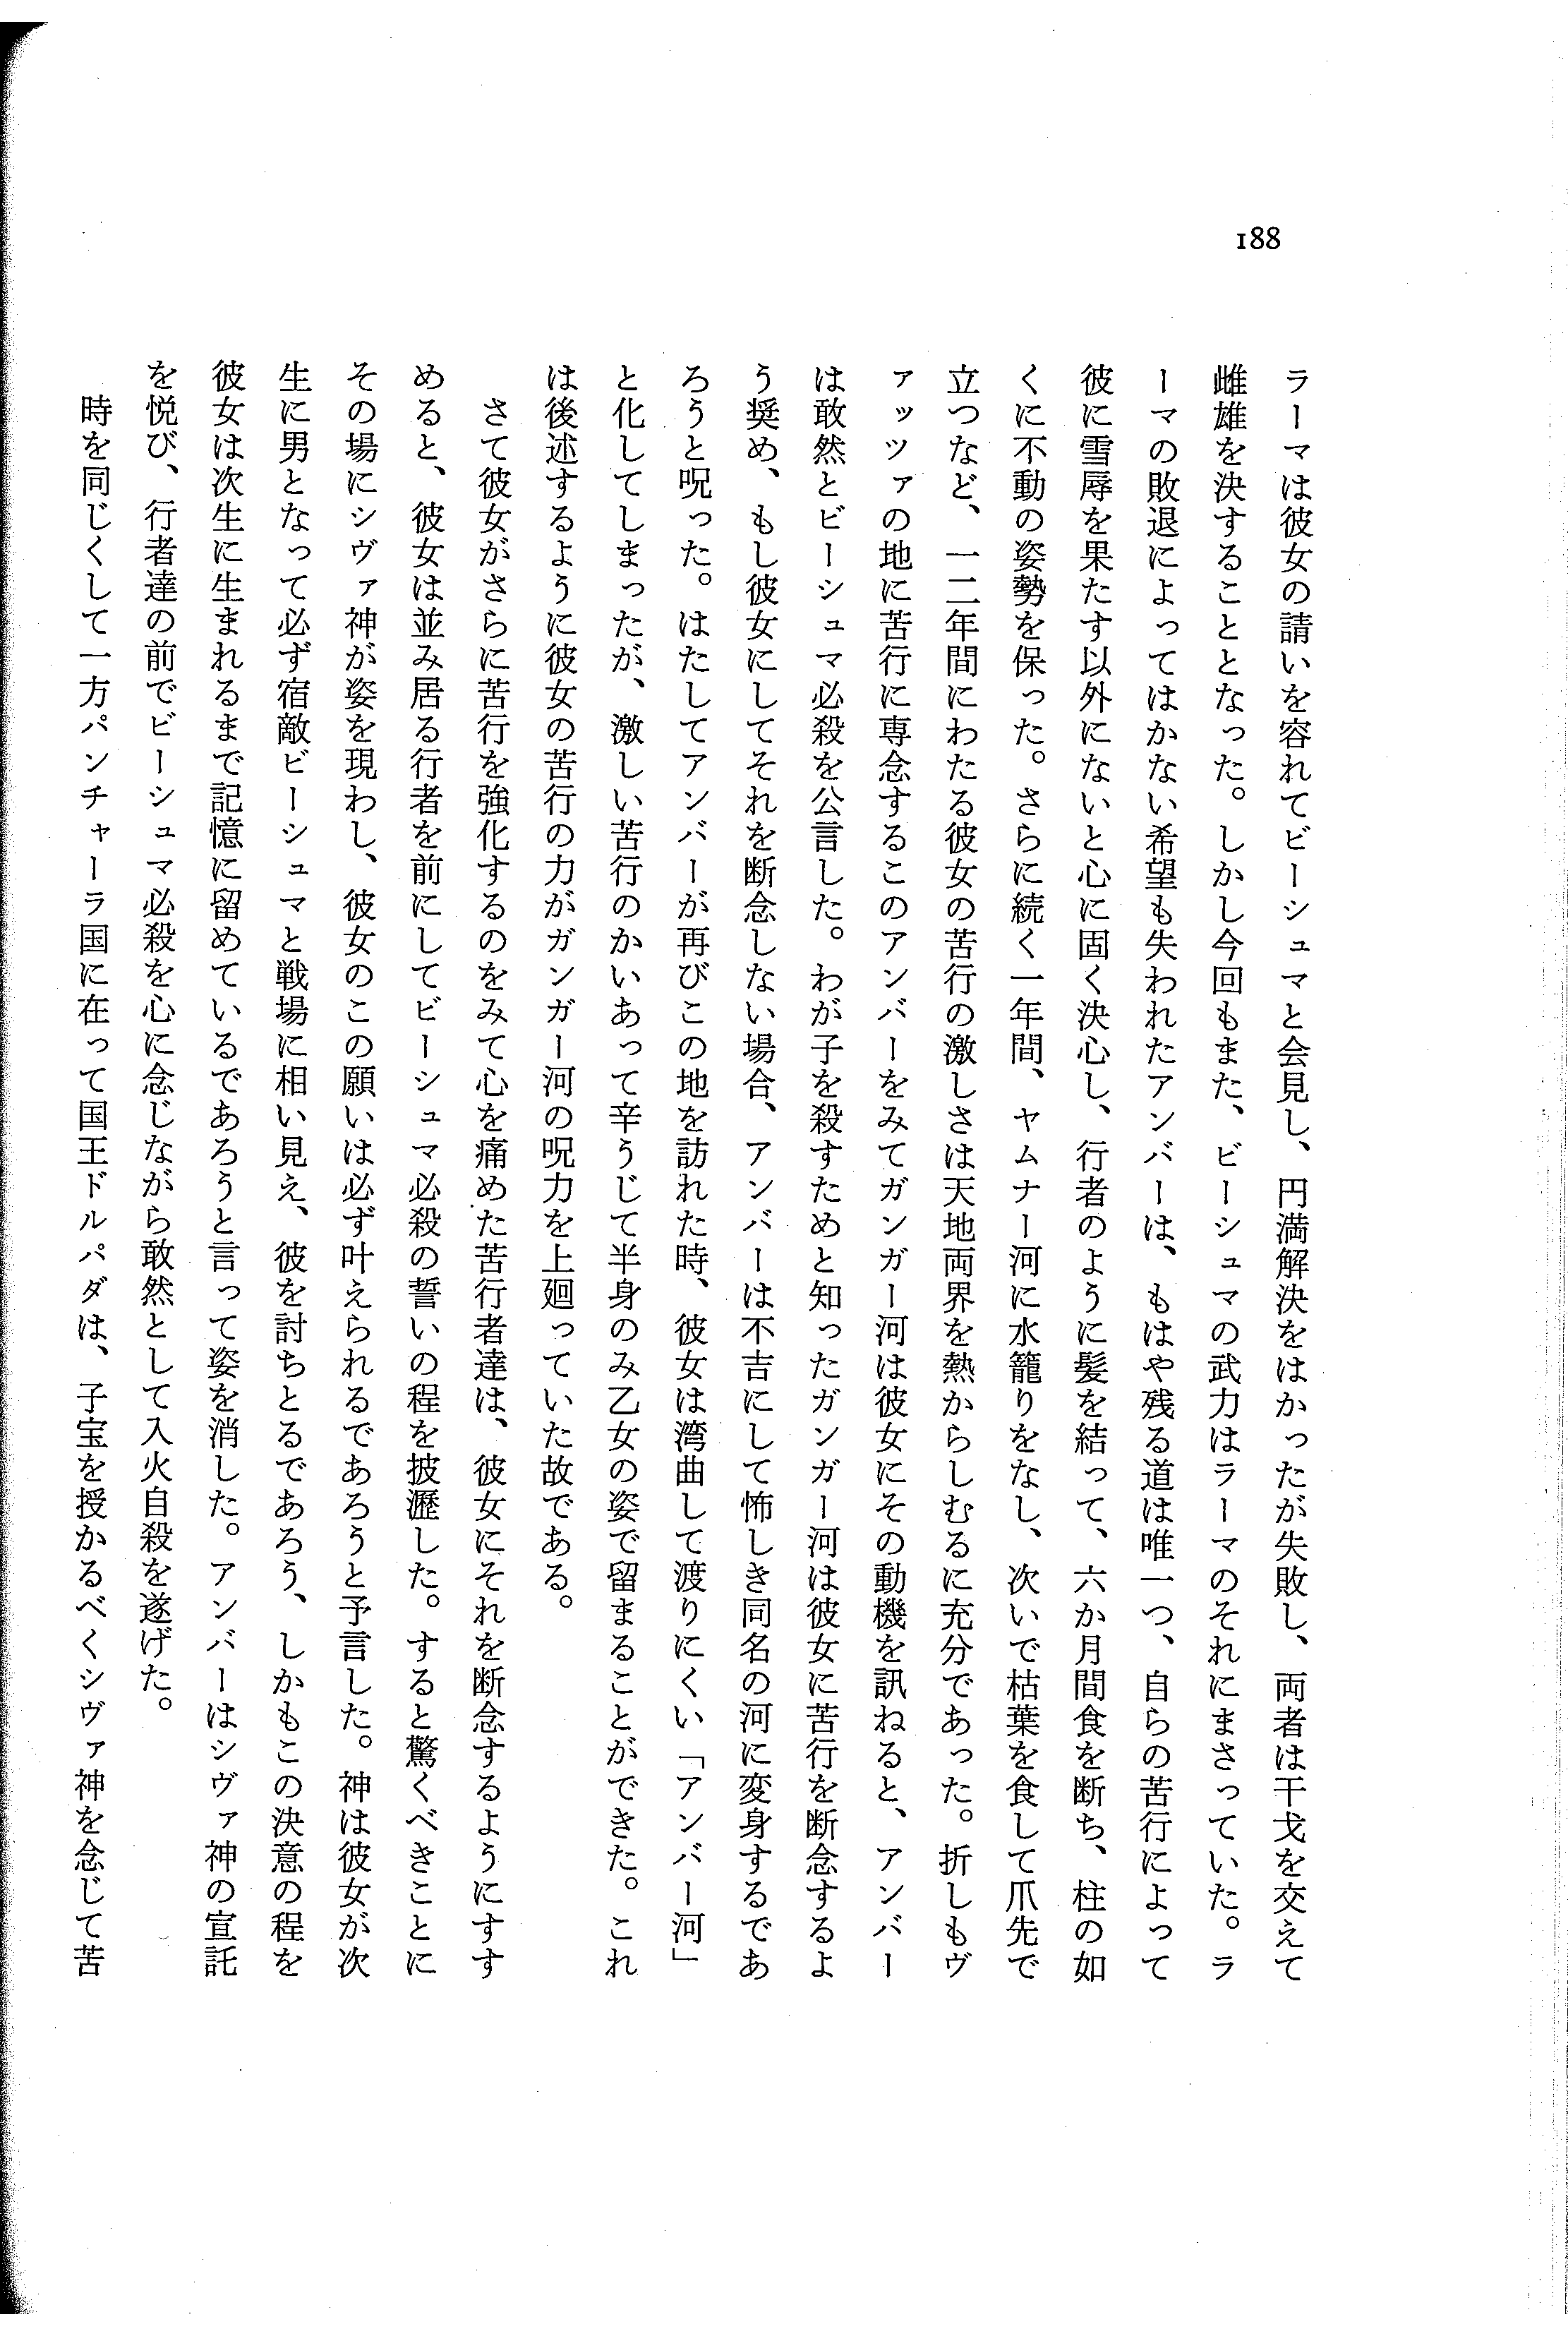 188
ラーマは彼女の請いを容れてビーシュマと会見し、円満解決をはかったが失敗し、両者は干戈を交えて
雌雄を決することとなった。しかし今回もまた、ビーシュマの武力はラーマのそれにまさっていた。ラ
ーマの敗退によってはかない希望も失われたアンバーは、もはや残る道は唯一つ、自らの苦行によって
彼に雪辱を果たす以外にないと心に固く決心し、行者のように髪を結って、六か月間食を断ち、柱の如
くに不動の姿勢を保った。さらに続く一年間、ヤムナー河に水籠りをなし、次いで枯葉を食して爪先で
立つなど、一二年間にわたる彼女の苦行の激しさは天地両界を熱からしむるに充分であった。折しもヴ
ァッツァの地に苦行に専念するこのアンバーをみてガンガー河は彼女にその動機を訊ねると、アンバー
は敢然とビーシュマ必殺を公言した。わが子を殺すためと知ったガンガー河は彼女に苦行を断念するよ
う奨め、もし彼女にしてそれを断念しない場合、アンバーは不吉にして怖しき同名の河に変身するであ
ろうと呪った。はたしてアンバーが再びこの地を訪れた時、彼女は湾曲して渡りにくい「アンバー河」
と化してしまったが、激しい苦行のかいあって辛うじて半身のみ乙女の姿で留まることができた。これ
は後述するように彼女の苦行の力がガンガー河の呪力を上廻っていた故である。
さて彼女がさらに苦行を強化するのをみて心を痛めた苦行者達は、彼女にそれを断念するようにすす
めると、彼女は並み居る行者を前にしてビーシュマ必殺の誓いの程を披瀝した。すると驚くべきことに
その場にシヴァ神が姿を現わし、彼女のこの願いは必ず叶えられるであろうと予言した。神は彼女が次
生に男となって必ず宿敵ビーシュマと戦場に相い見え、彼を討ちとるであろう、しかもこの決意の程を
彼女は次生に生まれるまで記憶に留めているであろうと言って姿を消した。アンバーはシヴァ神の宣託
を悦び、行者達の前でビーシュマ必殺を心に念じながら敢然として入火自殺を遂げた。
時を同じくして一方パンチャーラ国に在って国王ドルパダは、子宝を授かるべくシヴァ神を念じて苦